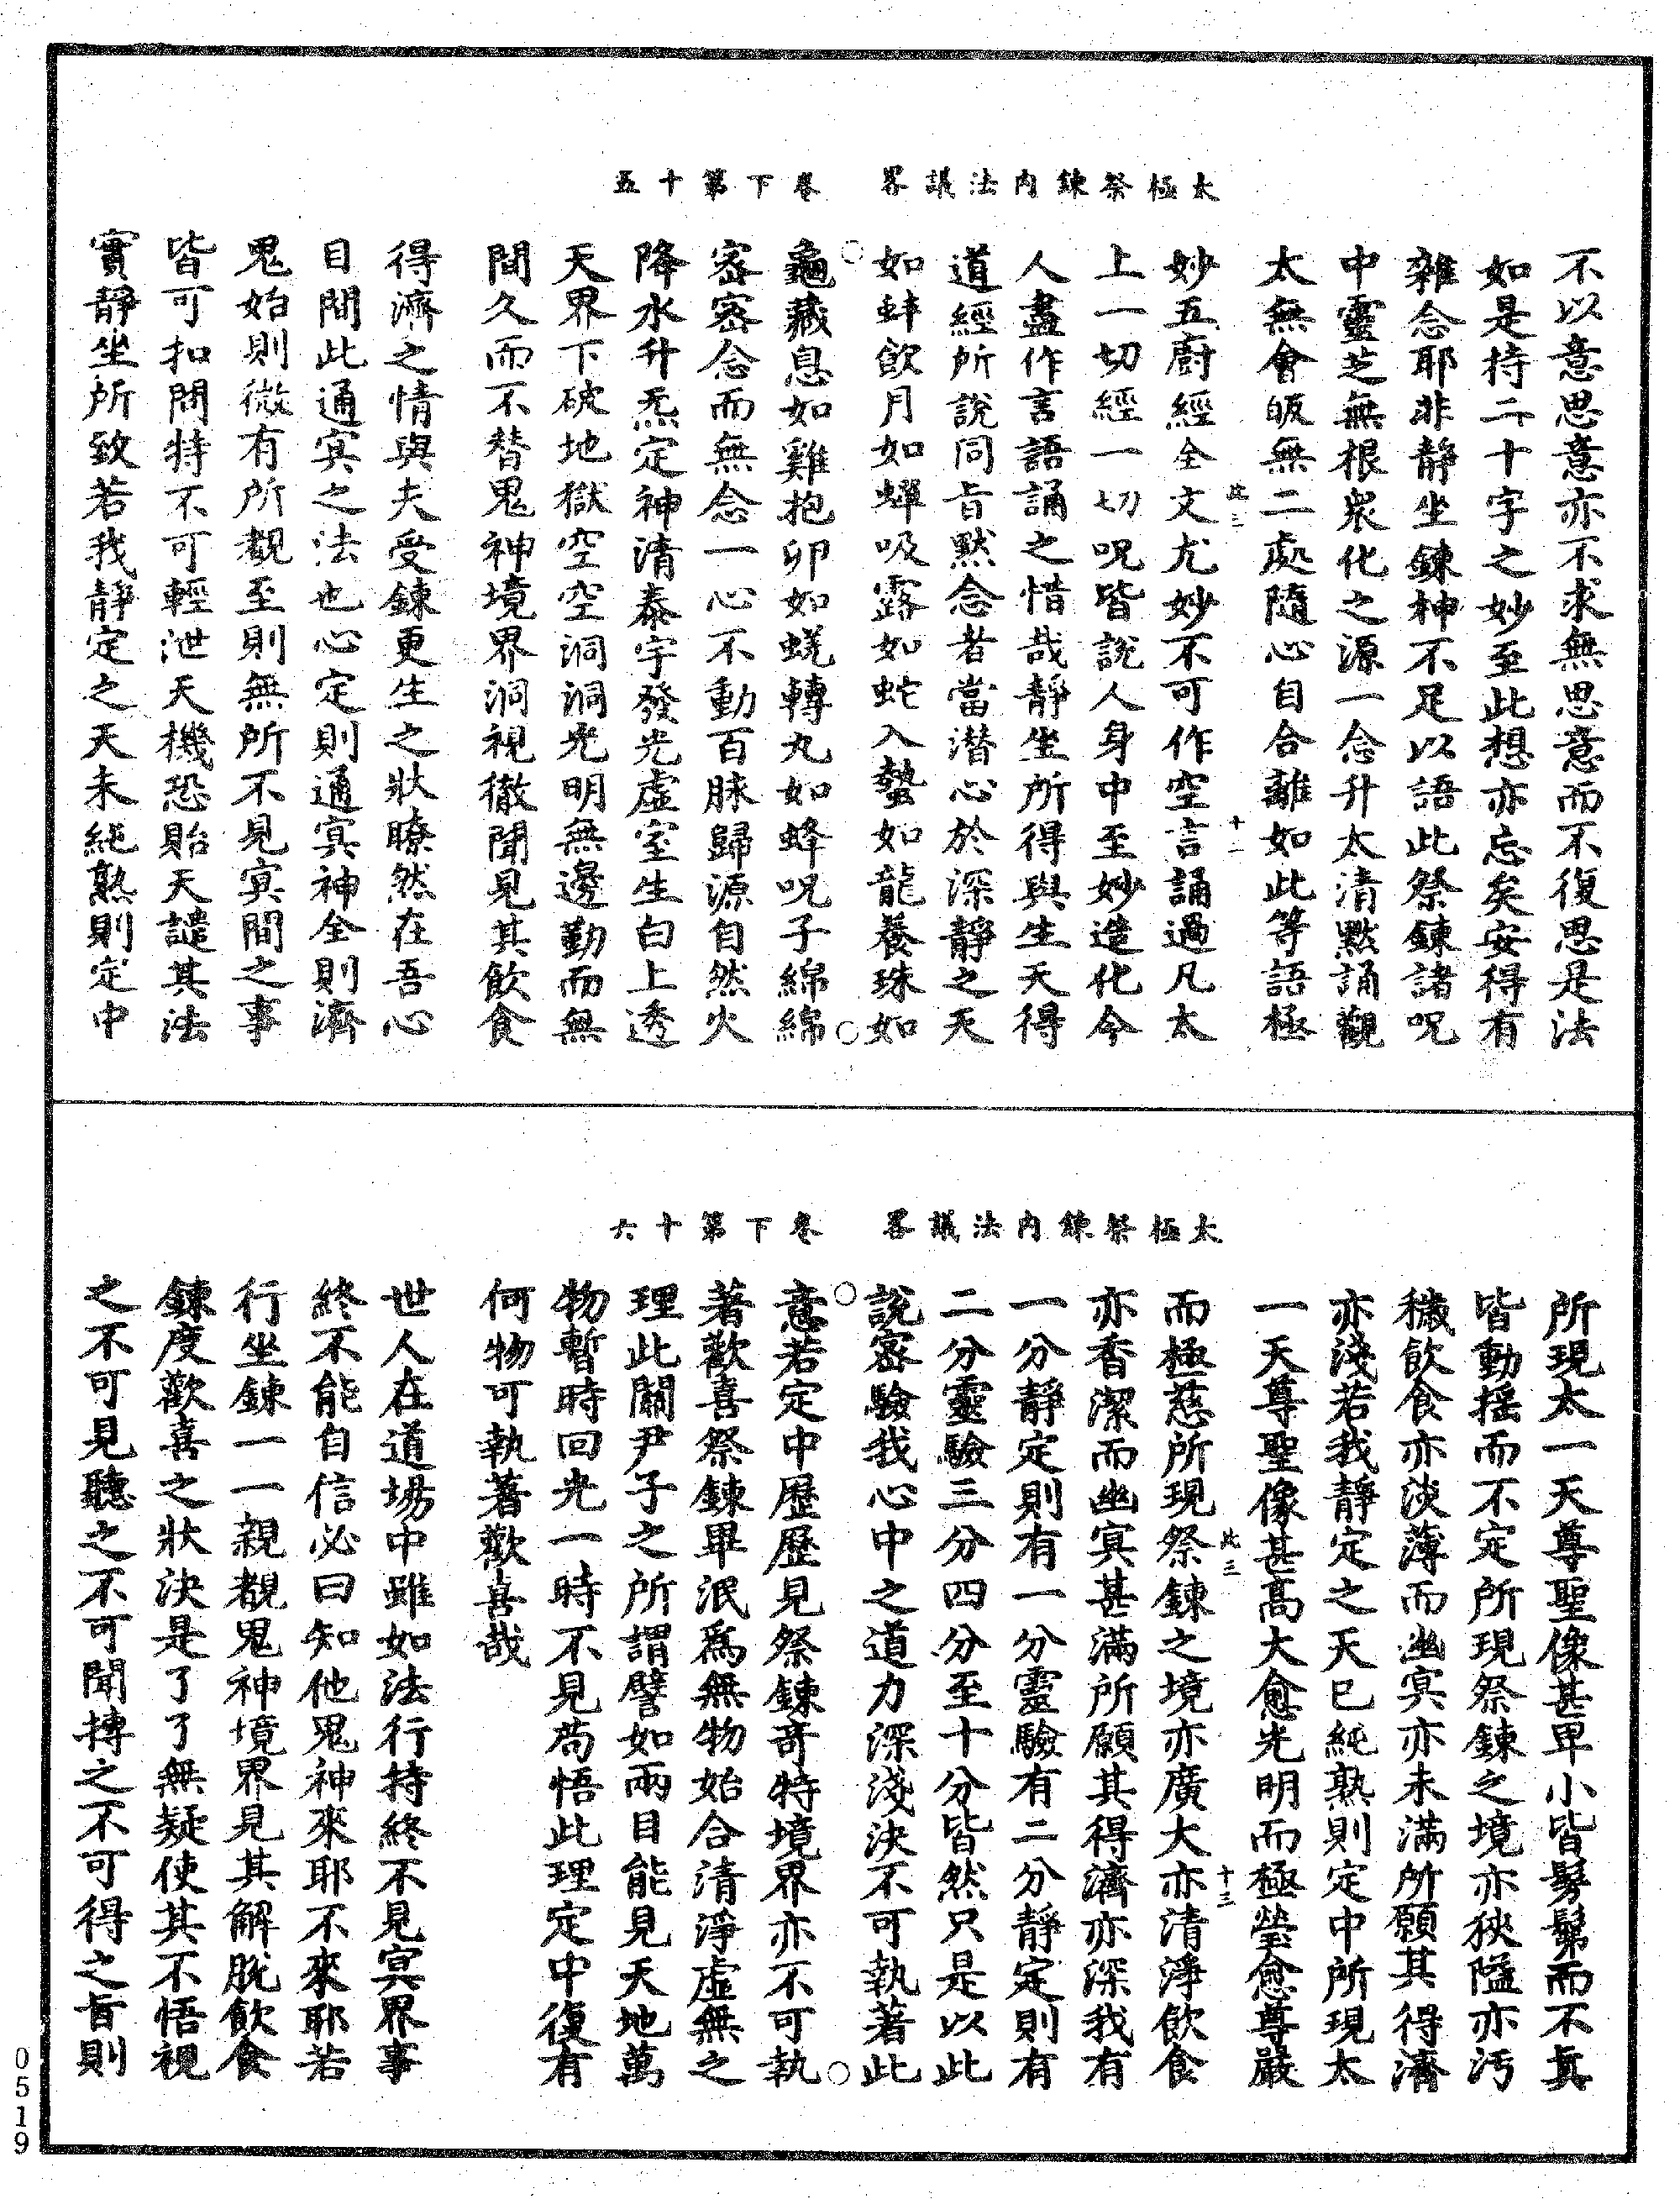 太極祭鍊內法議畧　卷下第十五
不以意思意亦不求無思意而不復思是法
如是持二十字之妙至此想亦忘矣安得有
雜念耶非靜坐鍊神不足以語此祭鍊諸呪
中靈芝無根衆化之源一念升太清默誦觀
太無會皈無二處隨心自合離如此等語極
此三
十一
妙五厨經全文尤妙不可作空言誦過凡太
上一切經一切呪皆說人身中至妙造化今
人盡作言語誦之惜哉靜坐所得與生天得
道經所說同旨默念者當潛心於深靜之天
如蚌飲月如蟬吸露如蛇入蟄如龍養珠如
龜藏息如雞抱卵如蜣轉丸如蜂呪子綿綿
密密念而無念一心不動百脉歸源自然火
降水升炁定神清泰宇發光虛室生白上透
天界下破地獄空空洞洞光明無邊勤而無
間久而不替鬼神境界洞視徹聞見其飲食
得濟之情與夫受鍊更生之狀瞭然在吾心
目間此通冥之法也心定則通冥神全則濟
鬼始則微有所覩至則無所不見冥間之事
皆可扣問特不可輕泄天機恐貽天譴其法
實靜坐所致若我靜定之天未純熟則定中
太極祭鍊內法議畧　卷下第十六
所現太一天尊聖像甚卑小皆髣髴而不真
皆動揺而不定所現祭鍊之境亦狹隘亦汚
穢飲食亦淡薄而幽冥亦未滿所願其得濟
亦淺若我靜定之天已純熟則定中所現太
一天尊聖像甚高大愈光明而極瑩愈尊嚴
此三
十三
而極慈所現祭鍊之境亦廣大亦清淨飲食
亦香潔而幽冥甚滿所願其得濟亦深我有
一分靜定則有一分靈驗有二分靜定則有
二分靈驗三分四分至十分皆然只是以此
說密驗我心中之道力深淺决不可執著此
意若定中歷歷見祭鍊奇特境界亦不可執
著歡喜祭鍊畢泯爲無物始合清淨虛無之
理此關尹子之所謂譬如兩目能見天地萬
物暫時回光一時不見苟悟此理定中復有
何物可執著歡喜哉
世人在道場中雖如法行持終不見冥界事
終不能自信必曰知他鬼神來耶不來耶若
行坐鍊一一親覩鬼神境界見其解脫飲食
鍊度歡喜之狀決是了了無疑使其不悟視
之不可見聽之不可聞摶之不可得之旨則
0519